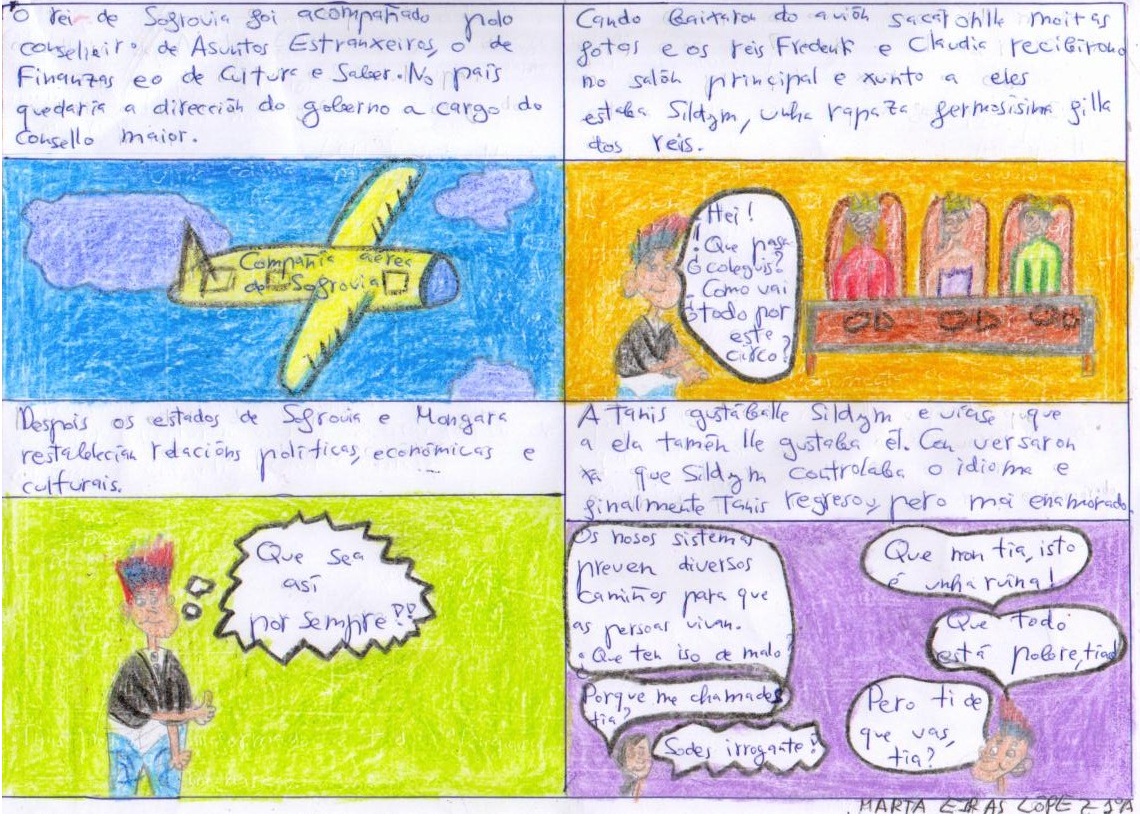 O rei de Sogrovia foi acompañado polo
conselleiro de Asuntos Estranxeiros, o de
Finanzas e o de Cultura e Saber. No país
quedaría a dirección do goberno a cargo do
Consello maior.
Compañía aérea
de Sogrovia
Cando baixaron do avión sacáronlle moitas
fotos e os reis Frederik e Claudia recibírono
no salón principal e xunto a eles
estaba Sildym, unha rapaza fermosísima filla
dos reis.
Hei!
¿Que pasa
coleguis?
¿Como vai
todo por
este
circo?
Despois os estados de Sogrovia e Mongara
restablecían relacións políticas, económicas e
culturais.
Que sea
así
por sempre!!
A Tanis gustáballe Sildym e víase que
a ela tamén lle gustaba él. Conversaron
xa que Sildym controlaba o idioma e
finalmente Tanis regresou pero moi enamorado.
Que non tía, isto
é unha ruína!
Que todo
está pobre, tía!
Os nosos sistemas
preven diversos
camiños para que
as persoas vivan.
¿Que ten iso de malo?
Porque me chamades
tía?
Sodes irrogante!
Pero ti de
que vas,
tía?
MARTA EIRAS LÓPEZ 1ºA